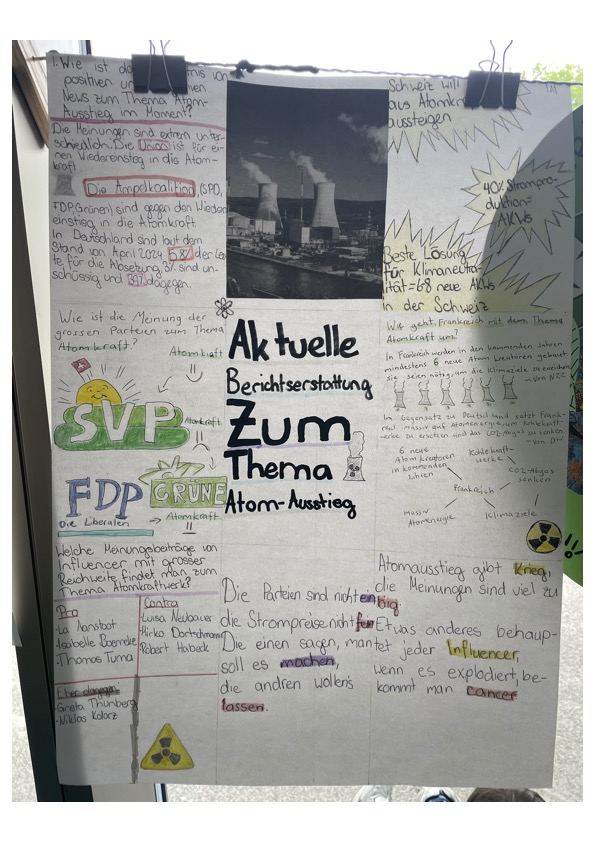 1. Wie ist da
positiven un
News zum Thema Atom-
Ausstieg im Moment?
Die Meinungen sind extrem unter-
schiedlich. Die Union ist für ei-
nen Wiedereinstieg in die Atom-
kraft.
Die Ampelkoalition (SPD,
FDP, Grünen) sind gegen den Wieder
einstieg in die Atomkraft.
In Deutschland sind laut dem
Stand von April 2024
te für die Absetzung, 3% sind un-
schüssig und dagegen.
Wie ist die Meinung der
grossen Parteien zum Thema
Atomkraft?
Atomkraft
SVP
Atomkraft
FDP
Die Liberalen
GRÜNE
Atomkraft
Welche Meinungsbeiträge von
Influencer mit grosser
Reichweite findet man zum
Thema Atomkraftwerk?
Pro
-La Nanstoot
-Isabelle Boemeke
-Thomas Tuma
Contra
-Luisa Neubauer
-Mirko
-Robert Habeck
Eher dagegen:
-Greta Thunberg
-Niklas Kolorz
Aktuelle
Berichtserstattung
Zum
Thema
Atom-Ausstieg
Die Parteien sind nicht einig
die Strompreise nicht
Die einen sagen, man
soll es machen,
die andren wollen's
lassen.
Schweiz will
aus Atomkr
aussteigen
40% Strompro-
duktion=
AKWs
Beste Lösung
für Klimaneutra-
lität=6-8 neue AKWs
in der Schweiz
Wie geht Frankreich mit dem Thema
Atomkraft um?
In Frankreich werden in den kommenden Jahren
mindestens 6 neue Atom kreatoren gebaut
sie seien nötig, um die Klimaziele zu erreichen
-von NZZ
Im Gegensatz zu Deutschland setzt Frank-
reich massiv auf Atomenergie, um Kohlekraft-
werke zu ersetzen und das CO2-Abgas zu senken
-von DW
6 neue
Atom kreatoren
in kommenden
Jahren
Kohlekraft-
werke
CO2-Abgas
senken
Frankreich
Massiv
Atomenergie
Klimaziele
Atomausstieg gibt Krieg,
die Meinungen sind viel zu
big.
Etwas anderes behaup-
tet jeder Influencer,
wenn es explodiert, be-
kommt man cancer